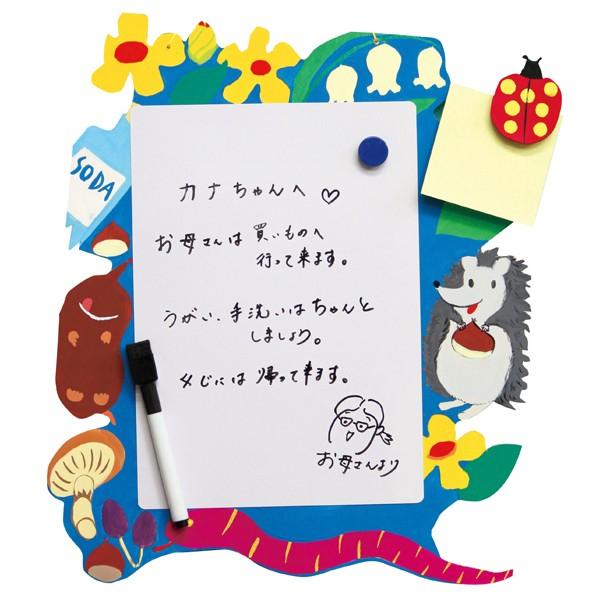 SODA
カナちゃんへ♡
お母さんは買いものへ
行って来ます。
うがい、手洗いはちゃんと
しましょう。
4じには帰って来ます。
お母さんより